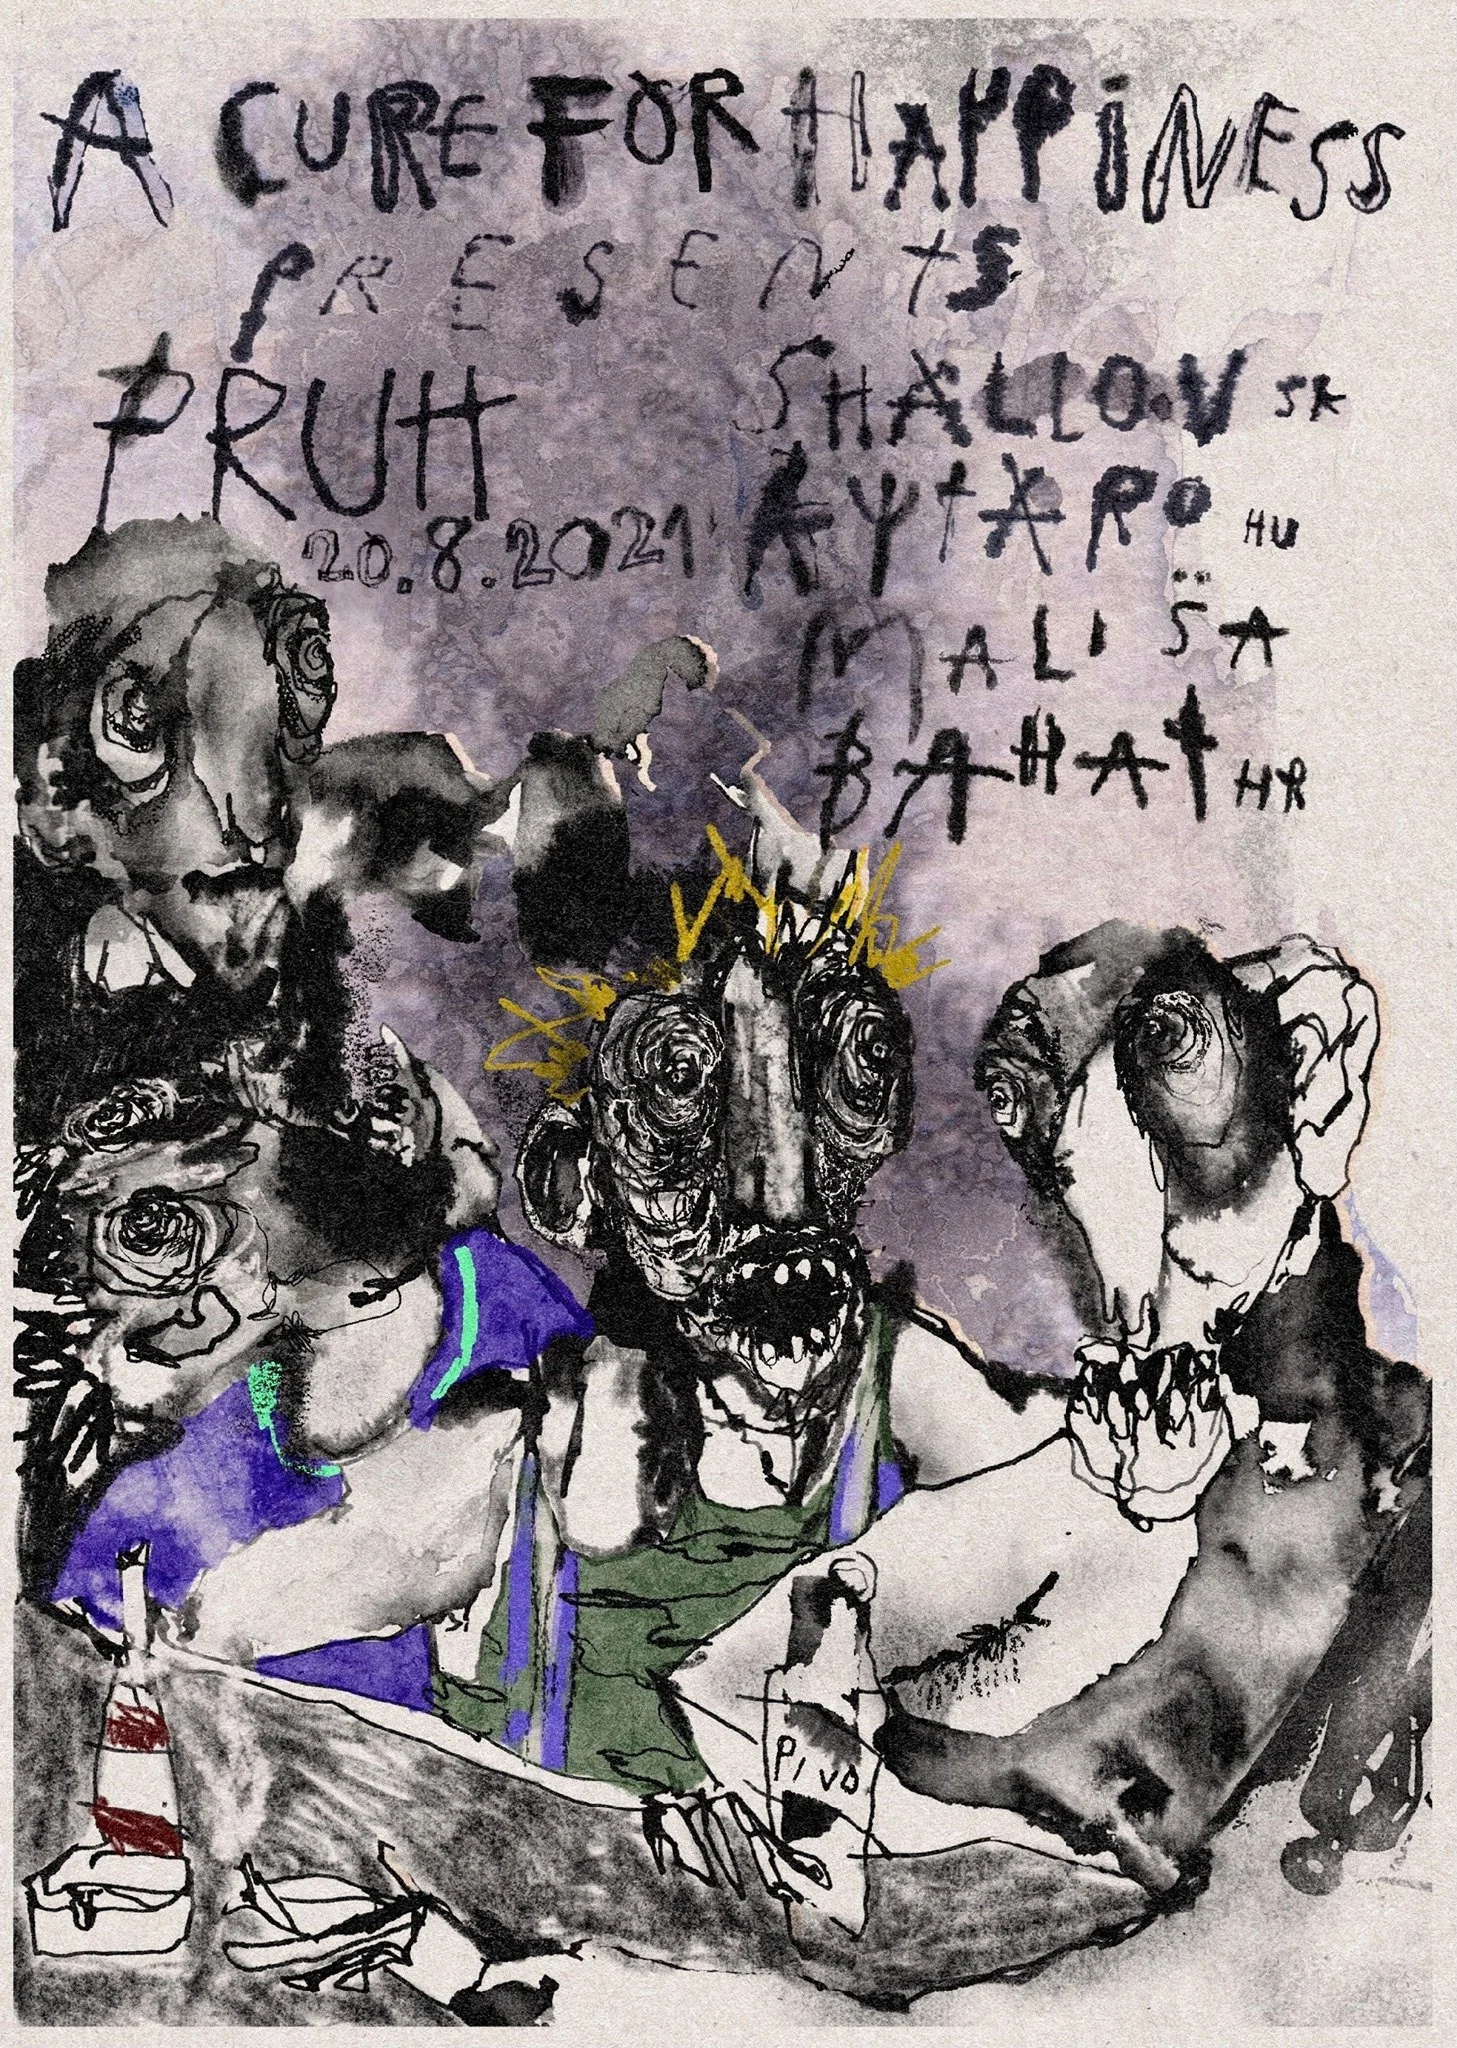 A CURE FOR HAPPiNESS
PRESENtS
PRUH
20.8.2021
SHALLOV SK
KYtXRO HU
MALISA
BAHAt HR
Pivo